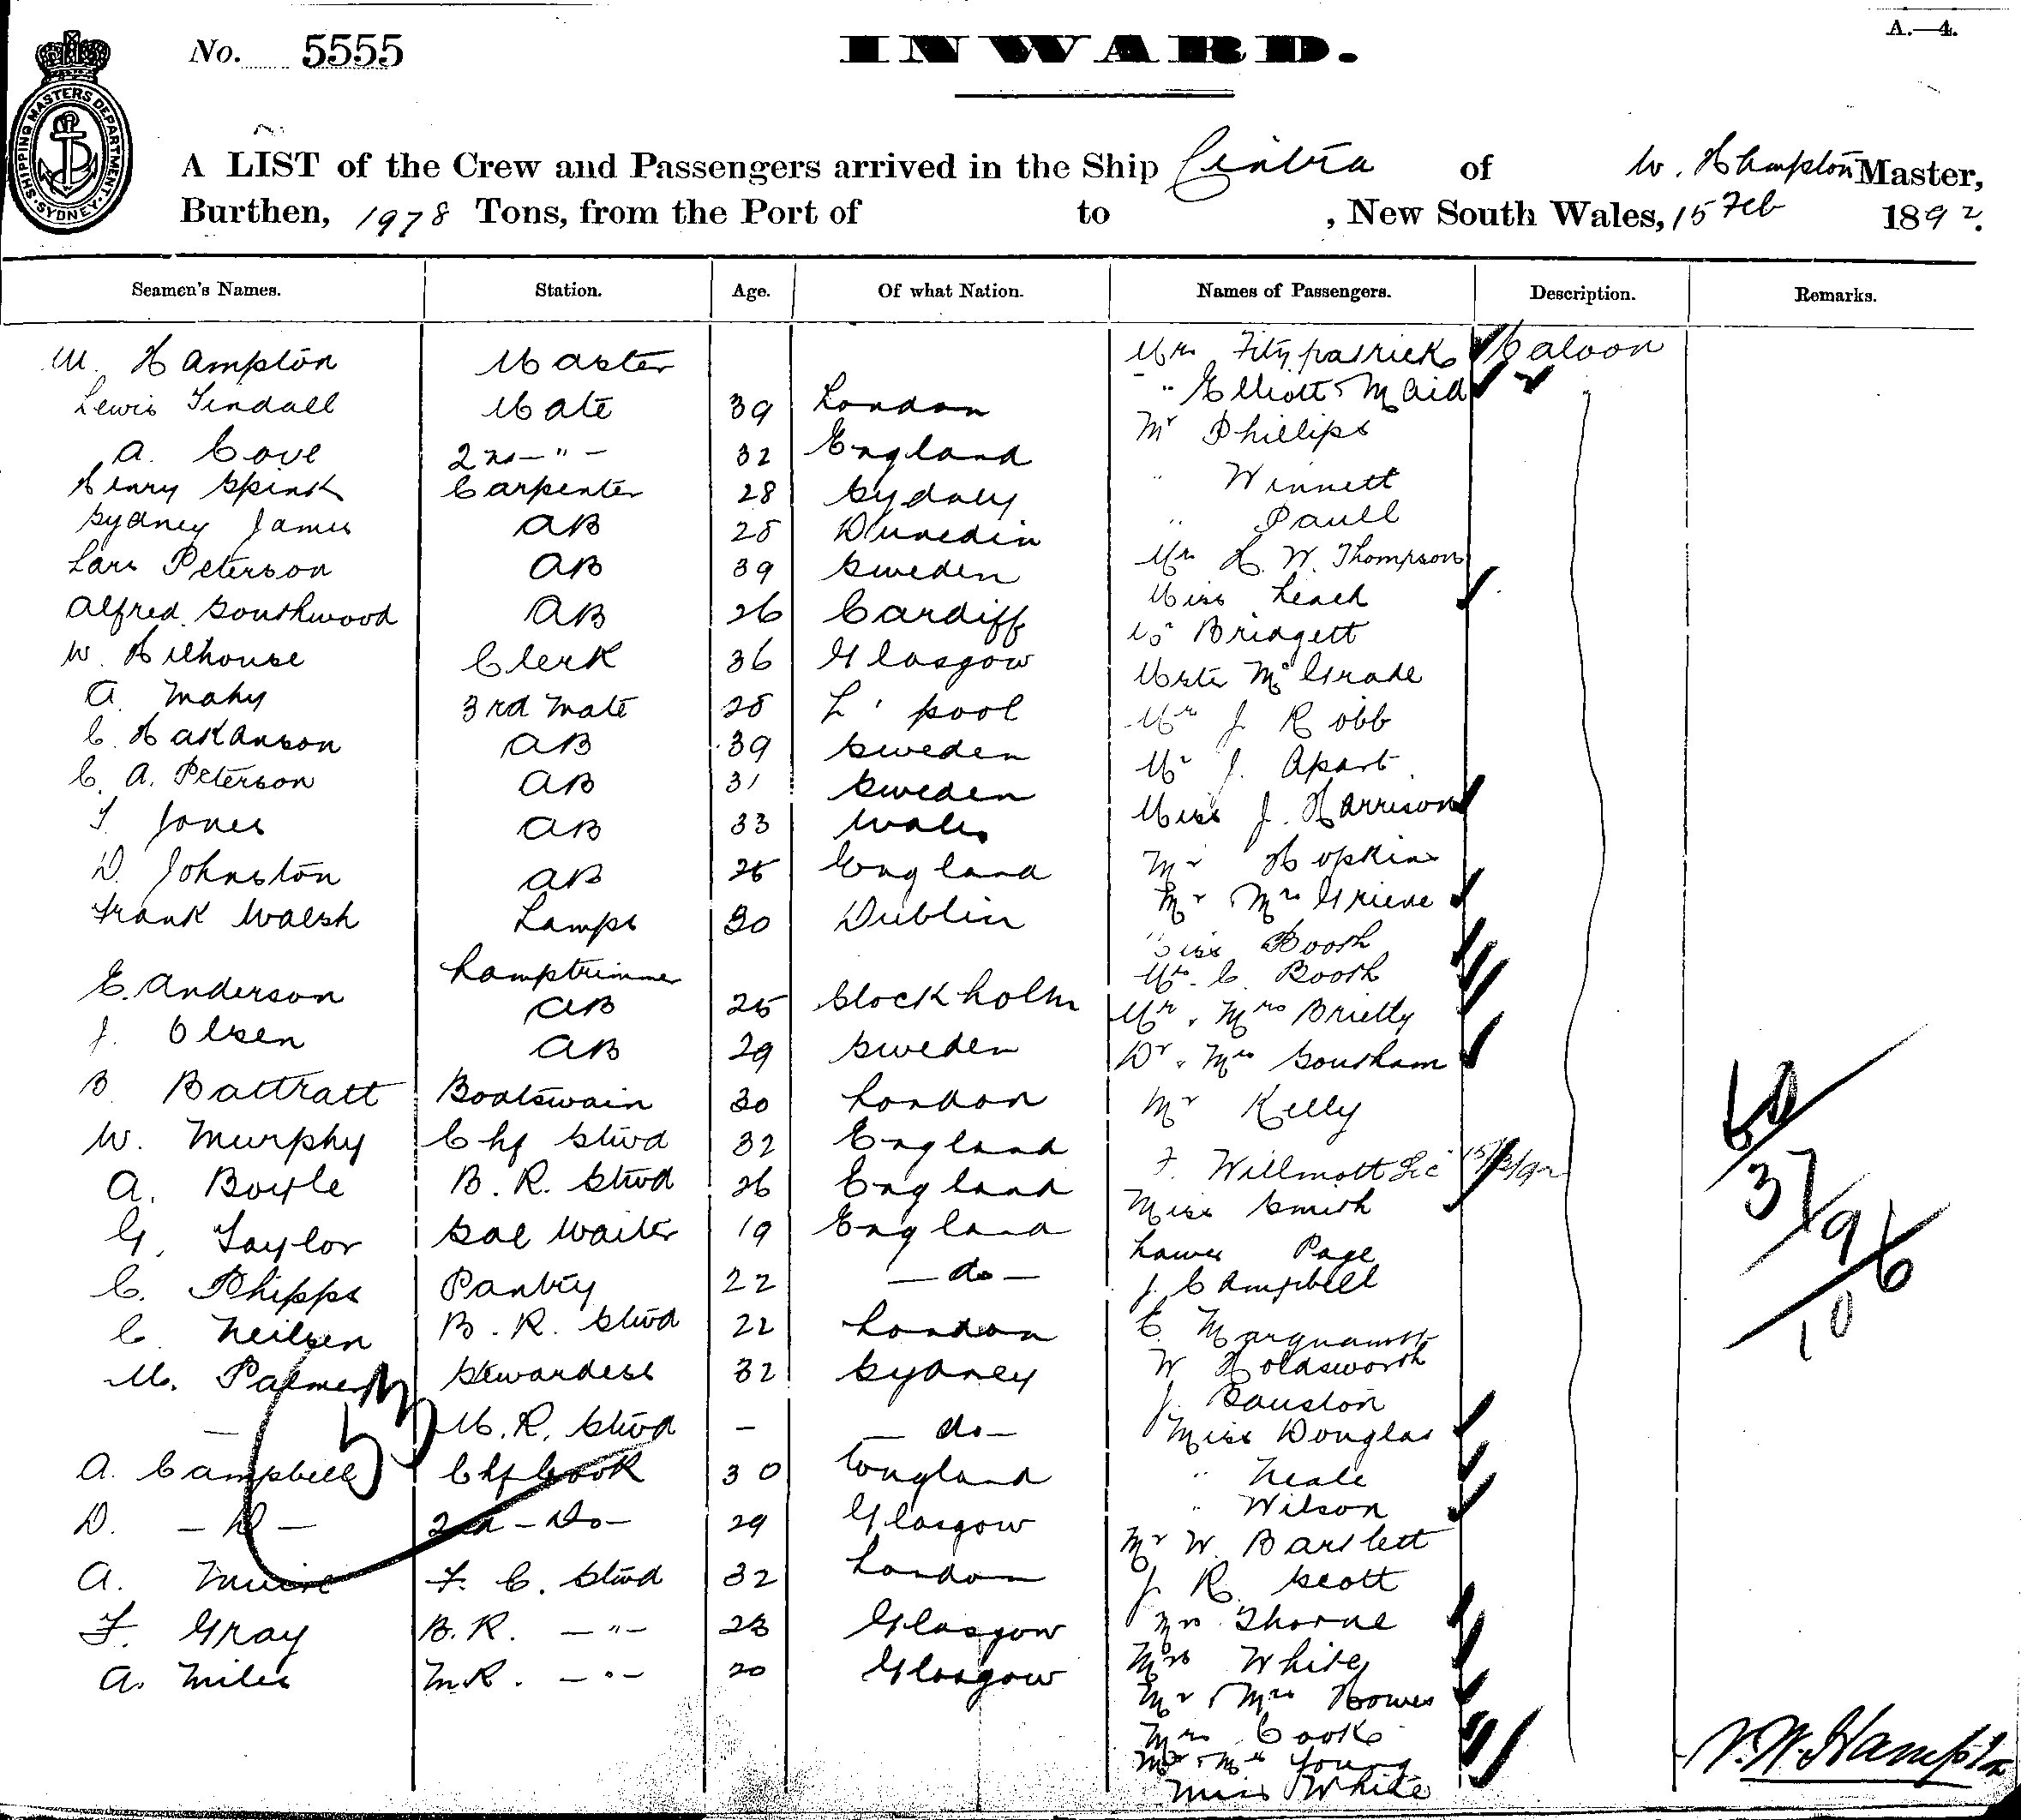 A.—4.
No. 5555
INWARD.
SHIPPING MASTERS DEPARTMENT. SYDNEY.
A LIST of the Crew and Passengers arrived in the Ship Cintra of W. Hampton Master,
Burthen, 1978 Tons, from the Port of to , New South Wales, 15 Feb 1892.
Seamen's Names. Station. Age. Of what Nation. Names of Passengers. Description. Remarks.
W. Hampton Master Mrs Fitzpatrick Saloon
Lewis Tindall Mate 39 London " Elliott & Maid
A. Cove 2nd — " — 32 England Mr Phillips
Henry Spink Carpenter 28 Sydney " Winnett
Sydney James AB 28 Dunedin " Paull
Lars Peterson AB 39 Sweden H. W. Thompson
Alfred Southwood AB 26 Cardiff Miss Leach
W. Hilhouse Clerk 36 Glasgow Bridgett
A. Mahy 3rd Mate 28 L'pool McGrade
C. Hakanson AB 39 Sweden Mr J Robb
C. A. Peterson AB 31 Sweden Mr J. Apart
T. Jones AB 33 Wales Miss J. Harrison
D. Johnston AB 25 England Mr Hopkins
Frank Walsh Lamps 30 Dublin Mr & Mrs Grieve
Lamptrimmer Miss Booth
E. Anderson AB 25 Stockholm C. Booth
Mr & Mrs Brielly
J. Olsen AB 29 Sweden Dr & Mrs Southam
B Battratt Boatswain 30 London Mr Kelly
W. Murphy Chf Stwd 32 England
A. Boyle B. R. Stwd 26 England F. Willmott
Miss Smith
G. Taylor Sal Waiter 19 England James Page
C. Phipps Pantry 22 — do — J. Campbell
C. Neilsen B. R. Stwd 22 London E.
M. Palmer Stewardess 32 Sydney W Holdsworth
J.
— M. R. Stwd — — do — Miss Douglas
A. Campbell Chf Cook 30 England " Neale
" Wilson
D. — D — 2nd — Do — 29 Glasgow Mr W. Bartlett
A. F. C. Stwd 32 London J. R. Scott
F. Gray B. R. — " — 23 Glasgow Mrs Thorne
A. Miles M.R. — " — 20 Glasgow Mrs White
Mr & Mrs Howes
Mrs Cook
Mr & Mrs Young
Miss White
53
60
37/96
10
W. Hampton